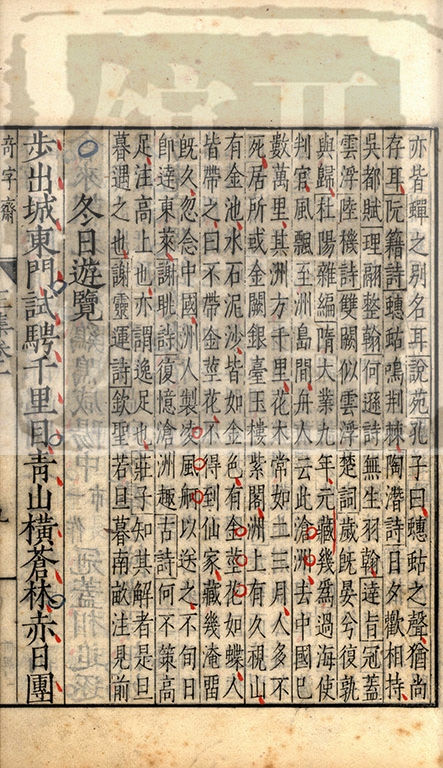 亦皆蟬之别名耳說苑孔子曰蟪蛄之聲猶尚
存耳阮籍詩蟪蛄鳴荆棘陶潛詩日夕歡相持
吳都賦理翮整翰何遜詩無生羽翰達旨冠蓋
雲浮陸機詩雙闕似雲浮楚詞歲旣晏兮復孰
與歸杜陽雜編隋大業九年元藏幾爲過海使
判官風飄至洲島間舟人云此滄洲去中國已
數萬里其洲方千里花木常如二三月人多不
死居所或金闕銀臺玉樓紫閣洲上有久視山
有金池水石泥沙皆如金色有金莖花如蝶人
皆帶之曰不帶金莖花不得到仙家藏幾淹留
旣久忽念中國洲人製凌風舸以送之不旬日
卽達東萊謝朓詩復憶滄洲趣古詩何不策高
足注高上也亦謂逸足也莊子知其解者是旦
暮遇之也謝靈運詩欽聖若旦暮南畝注見前
冬日遊覽
步出城東門試騁千里目青山橫蒼林赤日團
奇字齋